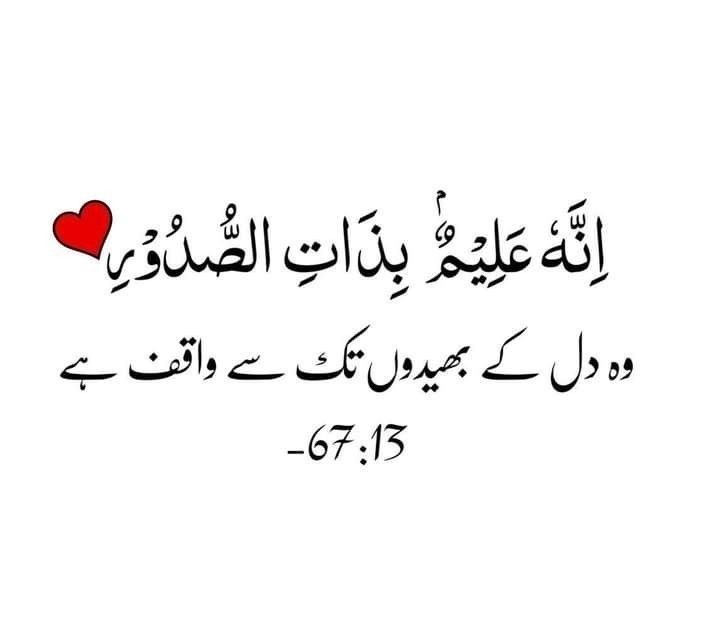 اِنَّهٗ عَلِیْمٌۢ بِذَاتِ الصُّدُوْرِ
وہ دل کے بھیدوں تک سے واقف ہے
-67:13